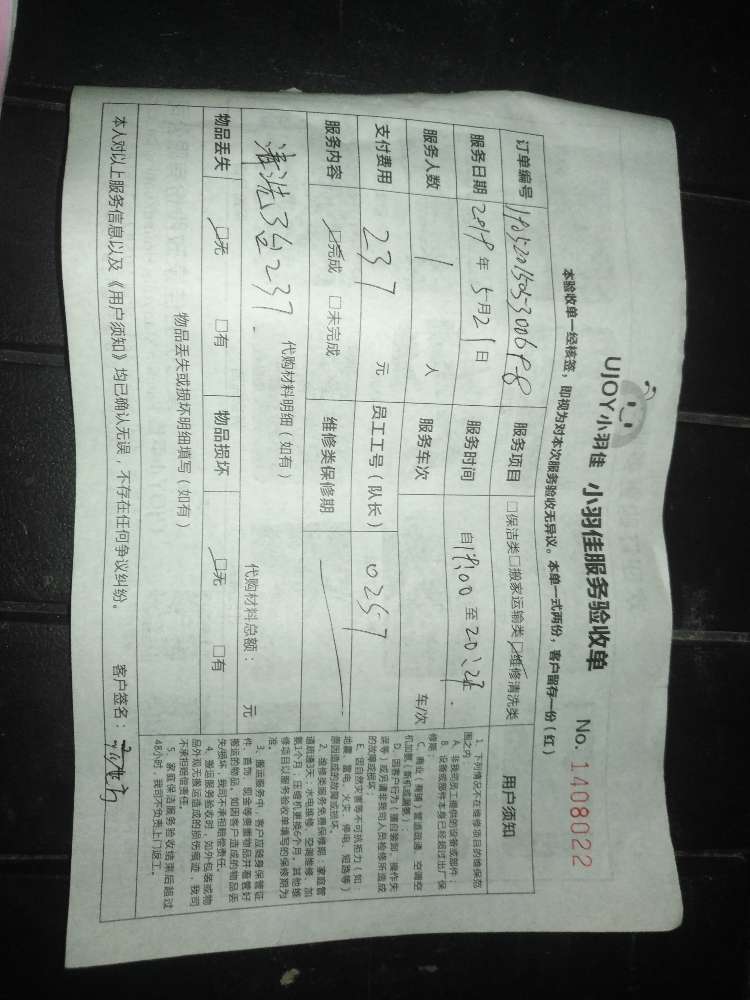 UJOY小羽佳 小羽佳服务验收单 No. 1408022
本验收单一经核签，即视为对本次服务验收无异议。本单一式两份，客户留存一份（红）
订单编号 服务项目 □保洁类□搬家运输类☑维修清洗类
服务日期 2019年5月21日 服务时间 自19:00至20:27.
服务人数 1 人 服务车次 车/次
支付费用 237 元 员工工号（队长） 0257
服务内容 ☑完成 □未完成 维修类保修期
清洗3台237. 代购材料明细（如有） 代购材料总额： 元
物品丢失 ☑无 □有 物品损坏 ☑无 □有
物品丢失或损坏明细填写（如有）
本人对以上服务信息以及《用户须知》均已确认无误，不存在任何争议纠纷。 客户签名：
用户须知
1、下列情况不在维修项目的维保范
围之内：
A、非我司员工提供的设备或部件；
B、设备或部件本身已经超过出厂保
修期；
D、因客户行为（擅自装卸、操作失
误等）或另请非我司人员检修所造成
的故障或损坏；
E、因自然灾害等不可抗拒力（如：
地震、雷电、火灾、停电、短路等）
原因造成的故障或损坏。
2、维修类服务免费保修期：家庭管
道疏通3天，水电维修、空调维修、加
氨1个月；压缩机更换6个月，其他维
修项目以服务验收单填写的保修期为
准。
3、搬运服务中，客户应随身保管证
件、首饰、现金等贵重物品并看管好
搬运的物品，如因客户造成的物品丢
失/损坏，我司不承担赔偿责任。
4、搬运服务验收时，如外包装或物
品外观无搬运造成的损伤痕迹，我司
不承担赔偿责任。
5、家庭保洁服务验收结束后超过
48小时，我司不负责上门返工。